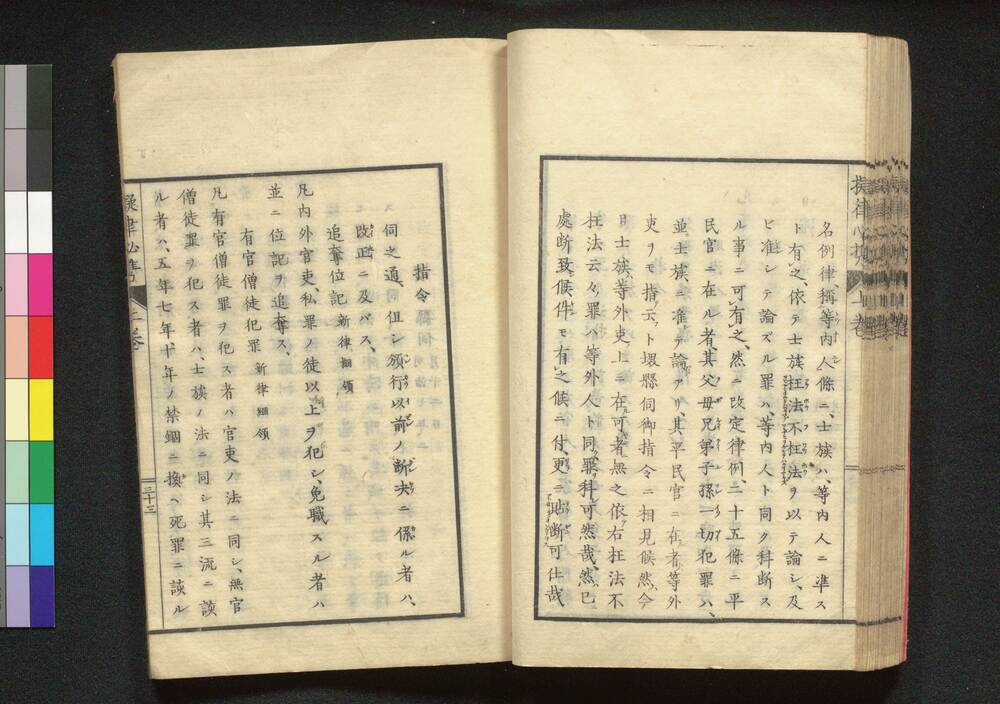 名例律稱等内人條ニ、士族ハ、等内人ニ準ス
ト有之、依テ士族枉法不枉法ヲ以テ論シ、及
ヒ准シテ論ズル罪ハ、等内人ト同ク科断ス
ル事ニ可有之、然ニ改定律例、二十五條ニ平
民官ニ在ル者、其父母兄弟子孫一切犯罪ハ、
並士族ニ准テ論アリ、其平民官ニ在者、等外
吏ヲモ指云ト堤縣伺御指令ニ相見候然ハ今
日士族、等外吏上ニ在可者無之依右枉法不
枉法云々罪ハ等外人ト同罪科可然哉、然已
處断致候件モ有之候ニ付、更ニ貼断可仕哉
指令
伺之通、但シ頒行以前ノ断决ニ係ル者ハ、
改正ニ及バス、
追奪位記 新律細領
凡内外官吏、私罪ノ徒以上ヲ犯シ、免職スル者ハ
並ニ位記ヲ追奪ス、
有官僧徒犯罪 新律細領
凡有官僧徒罪ヲ犯ス者ハ官吏ノ法ニ同シ、無官
僧徒罪ヲ犯ス者ハ、士族ノ法ニ同シ其三流ニ該
ル者ハ、五年七年、十年ノ禁錮ニ換ヘ死罪ニ該ル
三十三